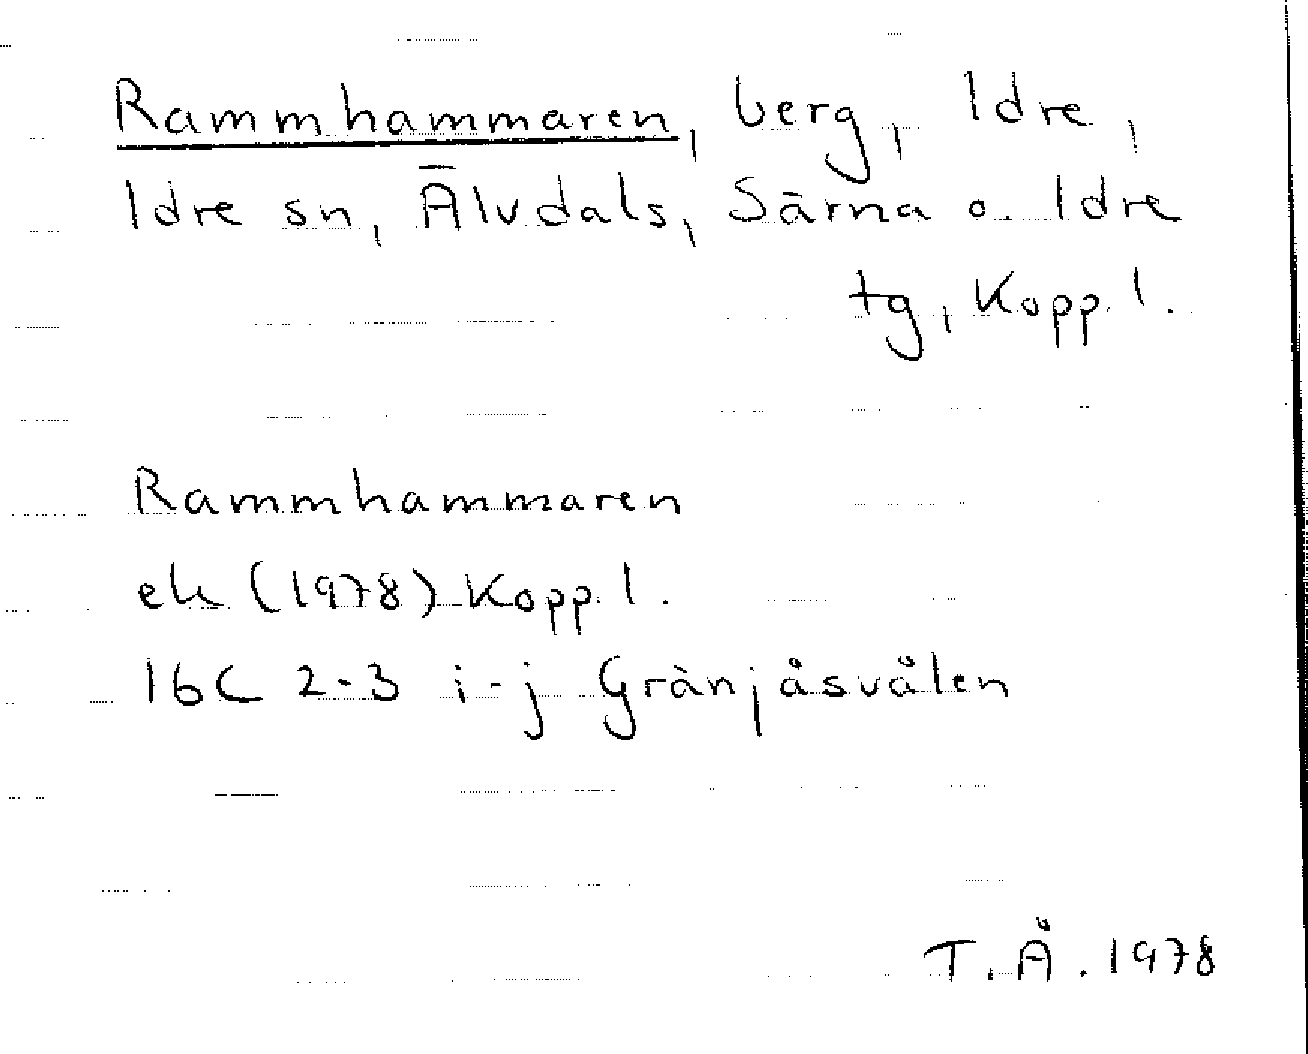 Rammhammaren, berg, Idre,
Idre sn, Älvdals, Särna o. Idre
tg, Kopp. l.
Rammhammaren
ek (1978) Kopp. l.
16C 2-3 i-j Gränjåsvålen
T. Å. 1978